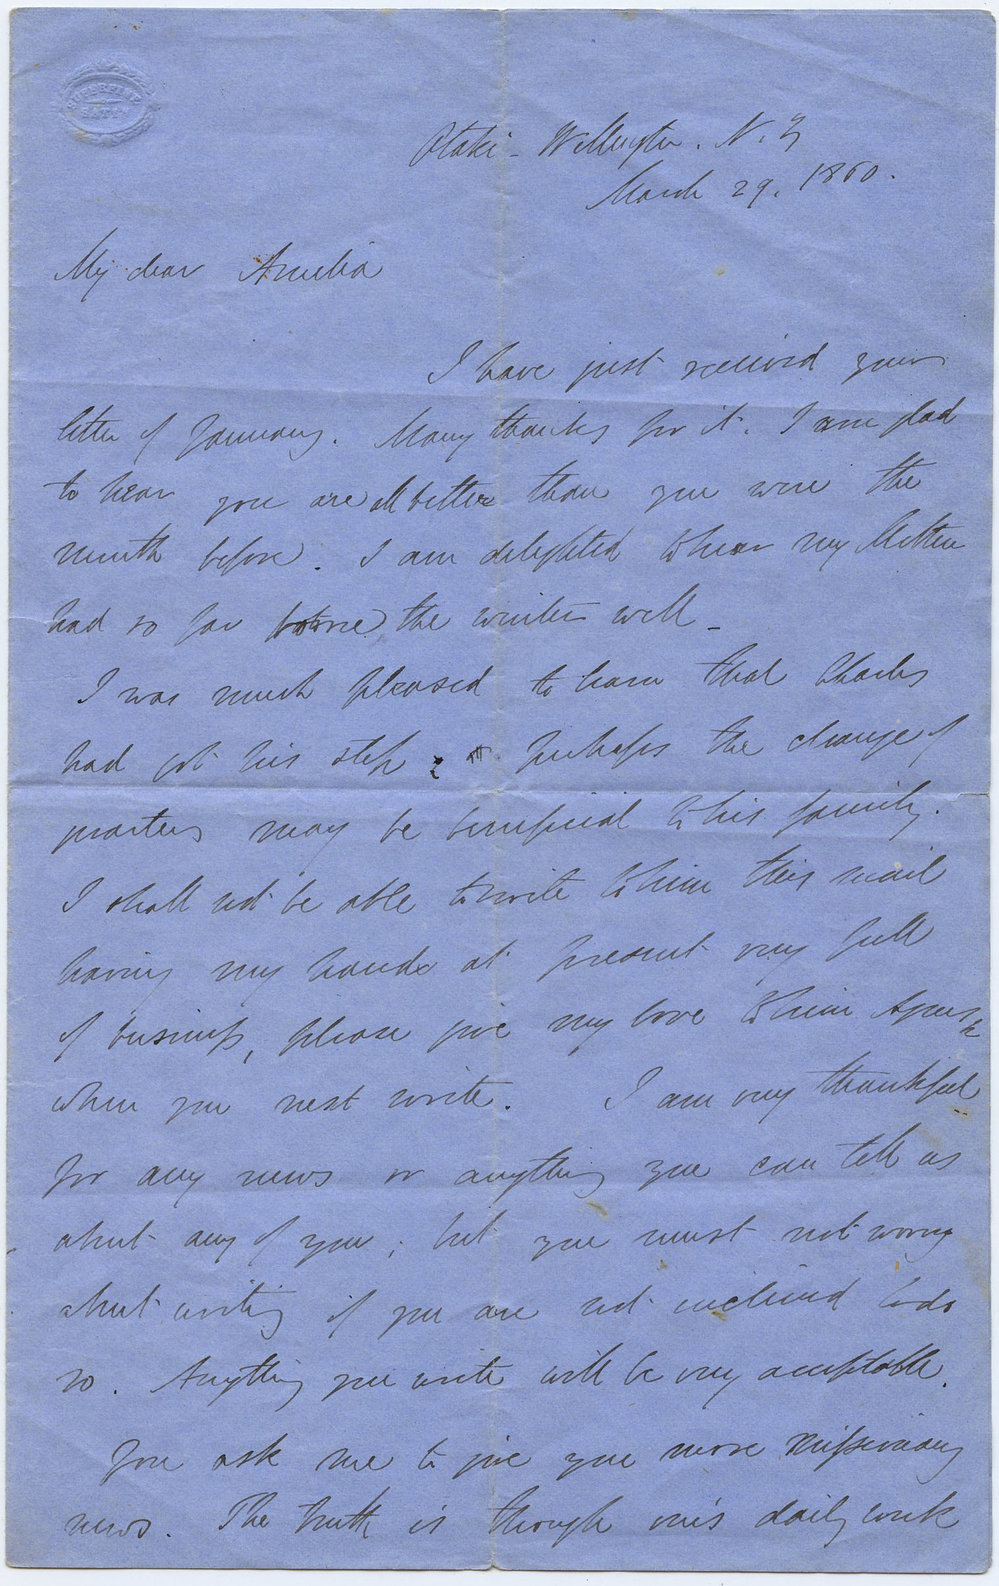 SUPERFINE
SATIN
Otaki - Wellington. N.Z
March 29. 1860.
My dear Amelia
I have just received your
letter of January. Many thanks for it. I am glad
to hear you are all better than you were the
month before. I am delighted to hear my Mother
had so far borne the winter well_
I was much pleased to learn that Charles
had got his step; perhaps the change of
quarters may be beneficial to his family.
I shall not be able to write to him this mail
having my hands at present very full
of business, please give my love to him &
when you next write. I am very thankful
for any news or anything you can tell us
about any of you; but you must not worry
about writing if you are not inclined to do
so. Anything you write will be very acceptable.
You ask me to give you more Missionary
news. The truth is though one's daily work